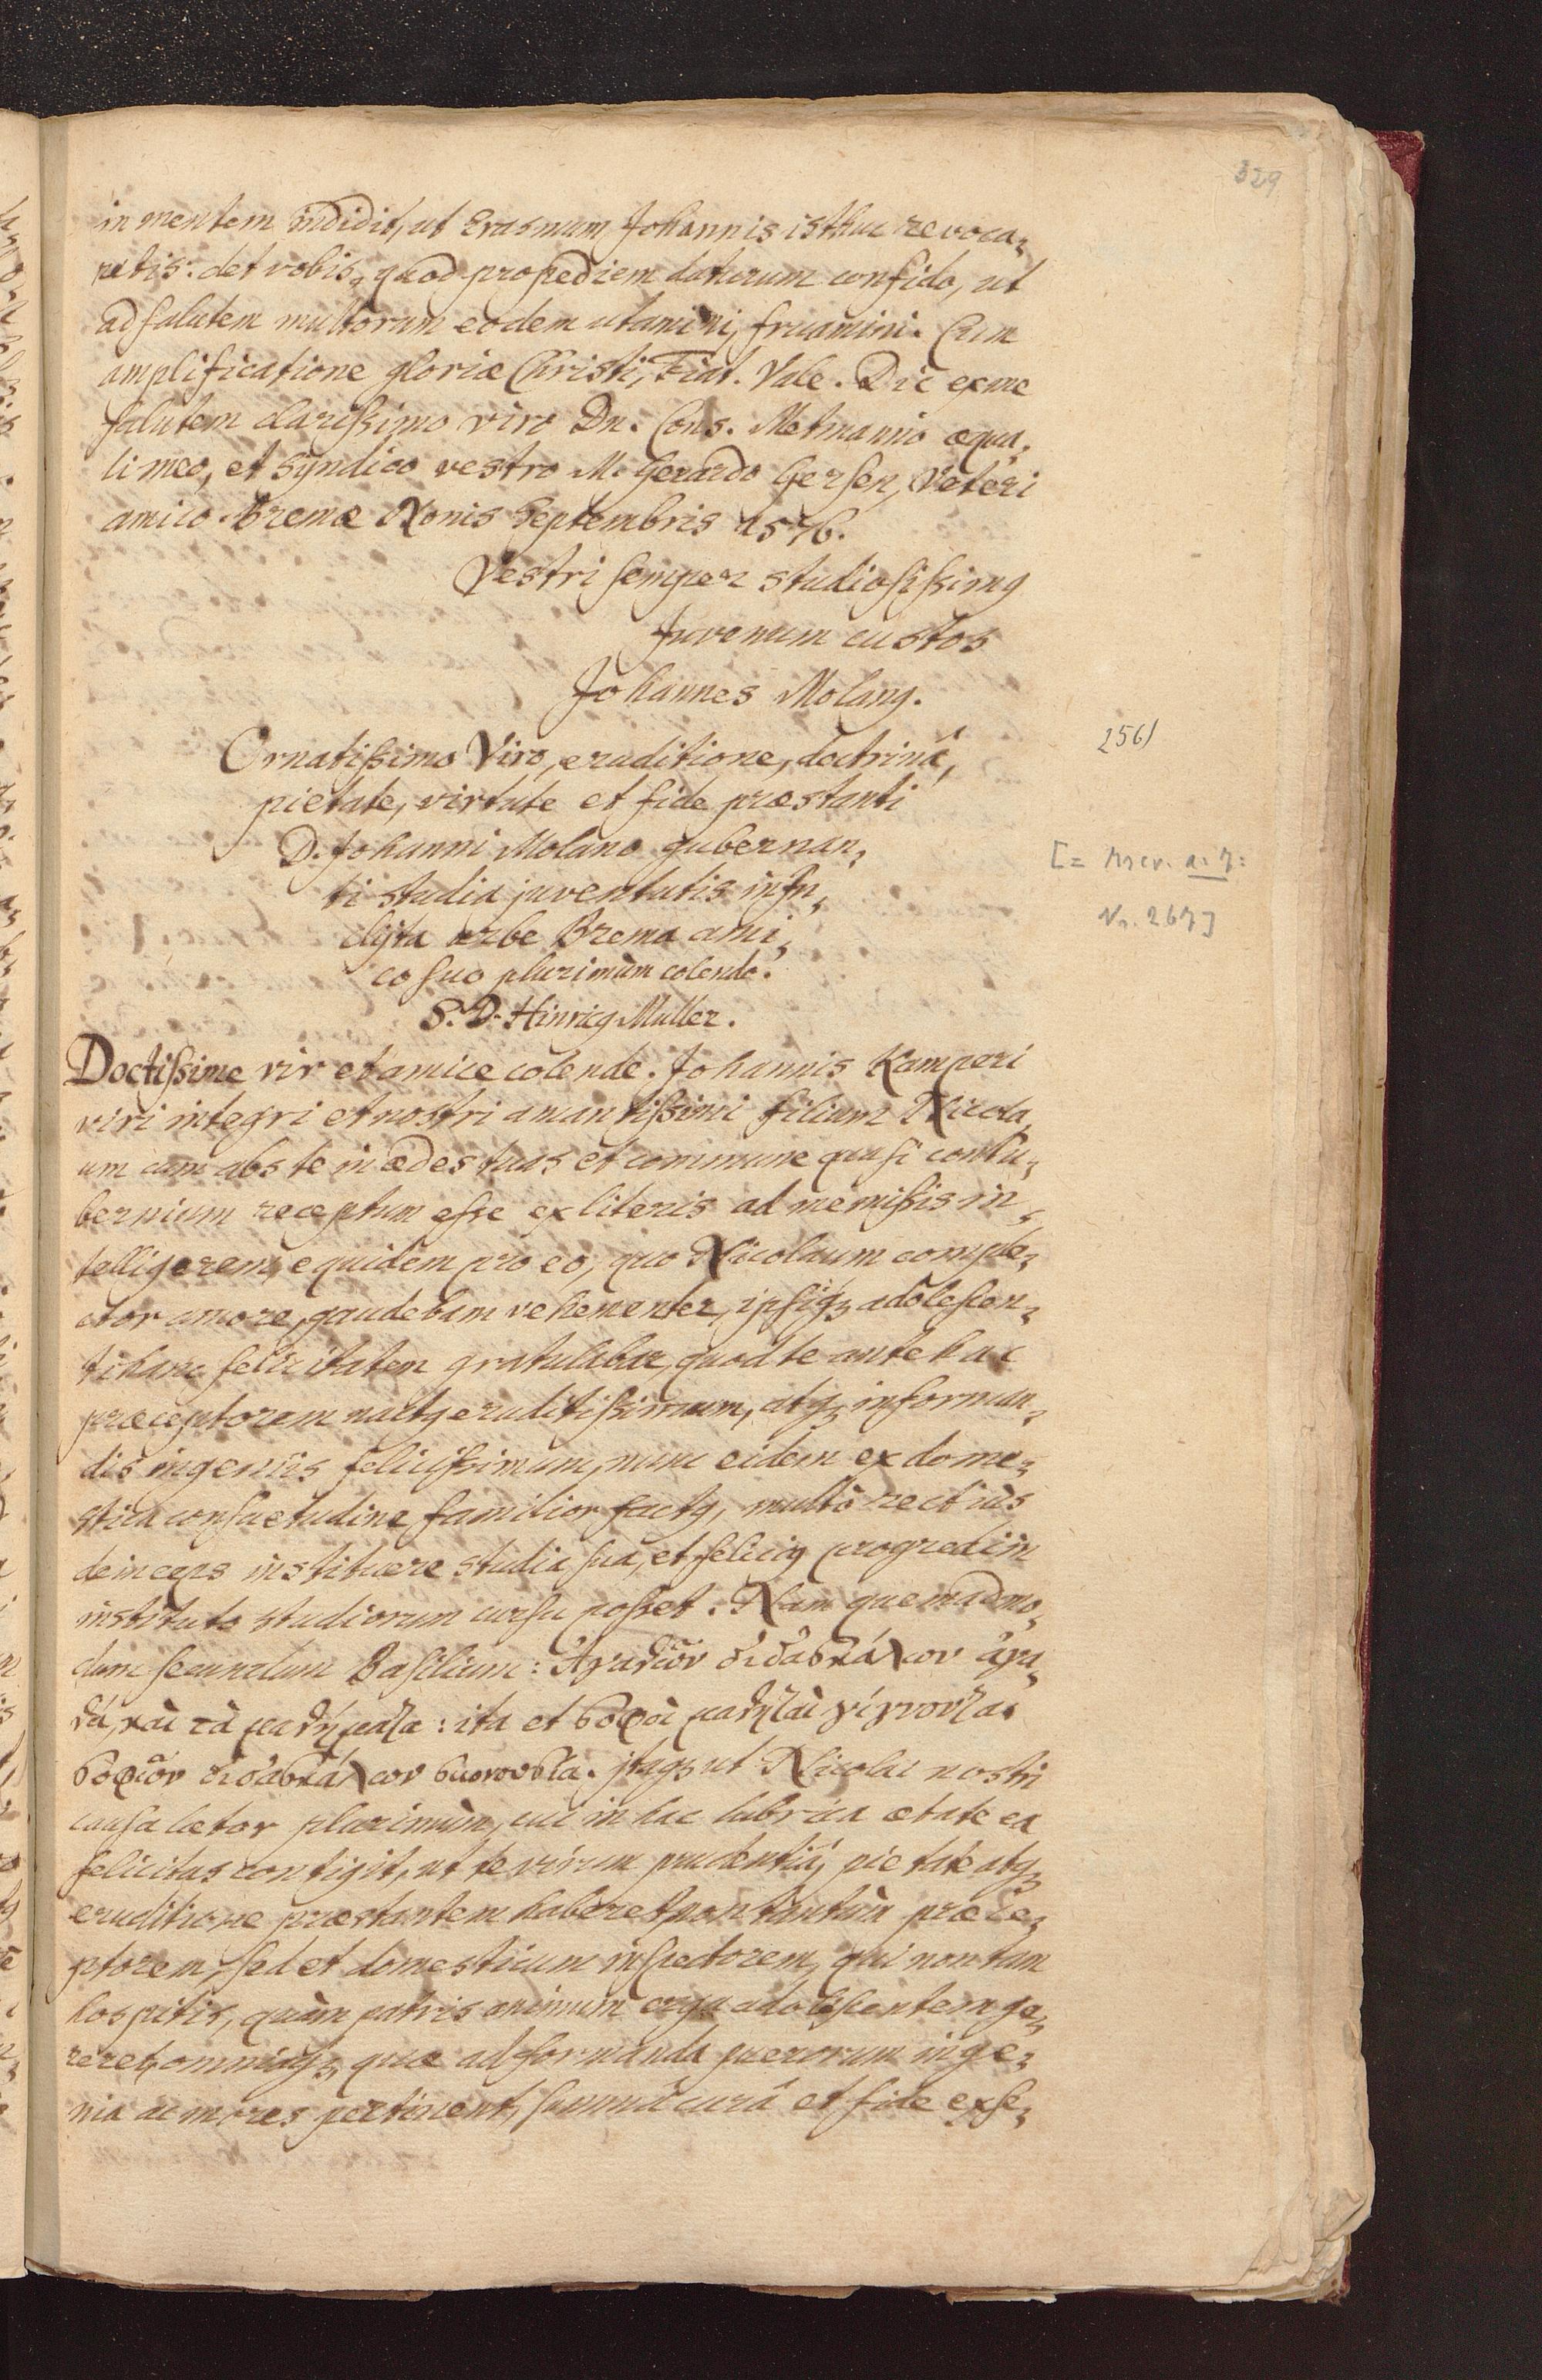 329
in mentem indidit, ut Erasmum Johannis isthuc revoca,
retis: det vobis, quod propediem daturum confido, ut
ad salutem multorum eodem utamini, fruamini. Cum
amplificatione gloriæ Christi, Fiat. Vale. Dic ex me
salutem clarissimo viro Dn. Cons. Metmanno æqua,
li meo, et Syndico vestro M. Gerardo Gersen, Veteri
amico. Bremæ Nonis Septembris 1576.
Vestri semper studiosissimꝰ
Juvenum custos
Johannes Molanꝰ.
256)
Ornatissimo Viro, eruditione, doctrinâ,
pietate, virtute et fide præstanti
D. Johanni Molano gubernan,
[= a. 7:
ti studia juventutis in In,
Nr. 267]
clyta urbe Brema ami,
co suo plurimùm colendo.
S. D. Hinricꝰ Muller.
Doctissime vir et amice colende. Johannis Kamperi
viri integri et nostri amantissimi filium Nicola,
um cum abs te in ædes tuas et commune quasi contu,
bernium receptum esse ex literis ad me missis in,
telligerem, equidem pro eo, quo Nicolaum comple,
ctor amore, gaudebam vehementer, ipsiqꝫ adolescen,
ti hanc felicitatem gratulabar, quod te antehac
præceptorem nactꝰ eruditissimum, atqꝫ informan,
dis ingeniis felicissimum, nunc eidem ex dome,
stica consuetudine familior factꝰ, multò rectiùs
deinceps instituere studia sua, et feliciꝰ progredi in
instituto studiorum cursu posset. Nam quemadmo,
dum secundum Basilium: Ἀγαθῶν διδασκάλων ἀγα,
θά, καὶ τὰ μαθήματα: ita et σοφοὶ μαθηταὶ γίγνονται
σοφῶν διδασκάλων συνουσίᾳ. Itaqꝫ ut Nicolai nostri
causa lætor plurimùm, cui in hac lubrica ætate ea
felicitas contigit, ut te virum prudentiâ, pietate atqꝫ
eruditione præstantem haberet non tantùm præce,
ptorem, sed et domesticum inspectorem, qui non tam
hospitis, quàm patris animum erga adolescentem ge,
reret, omniaqꝫ, quæ ad formanda puerorum inge,
nia ac mores pertinent, summâ curâ et fide exse,